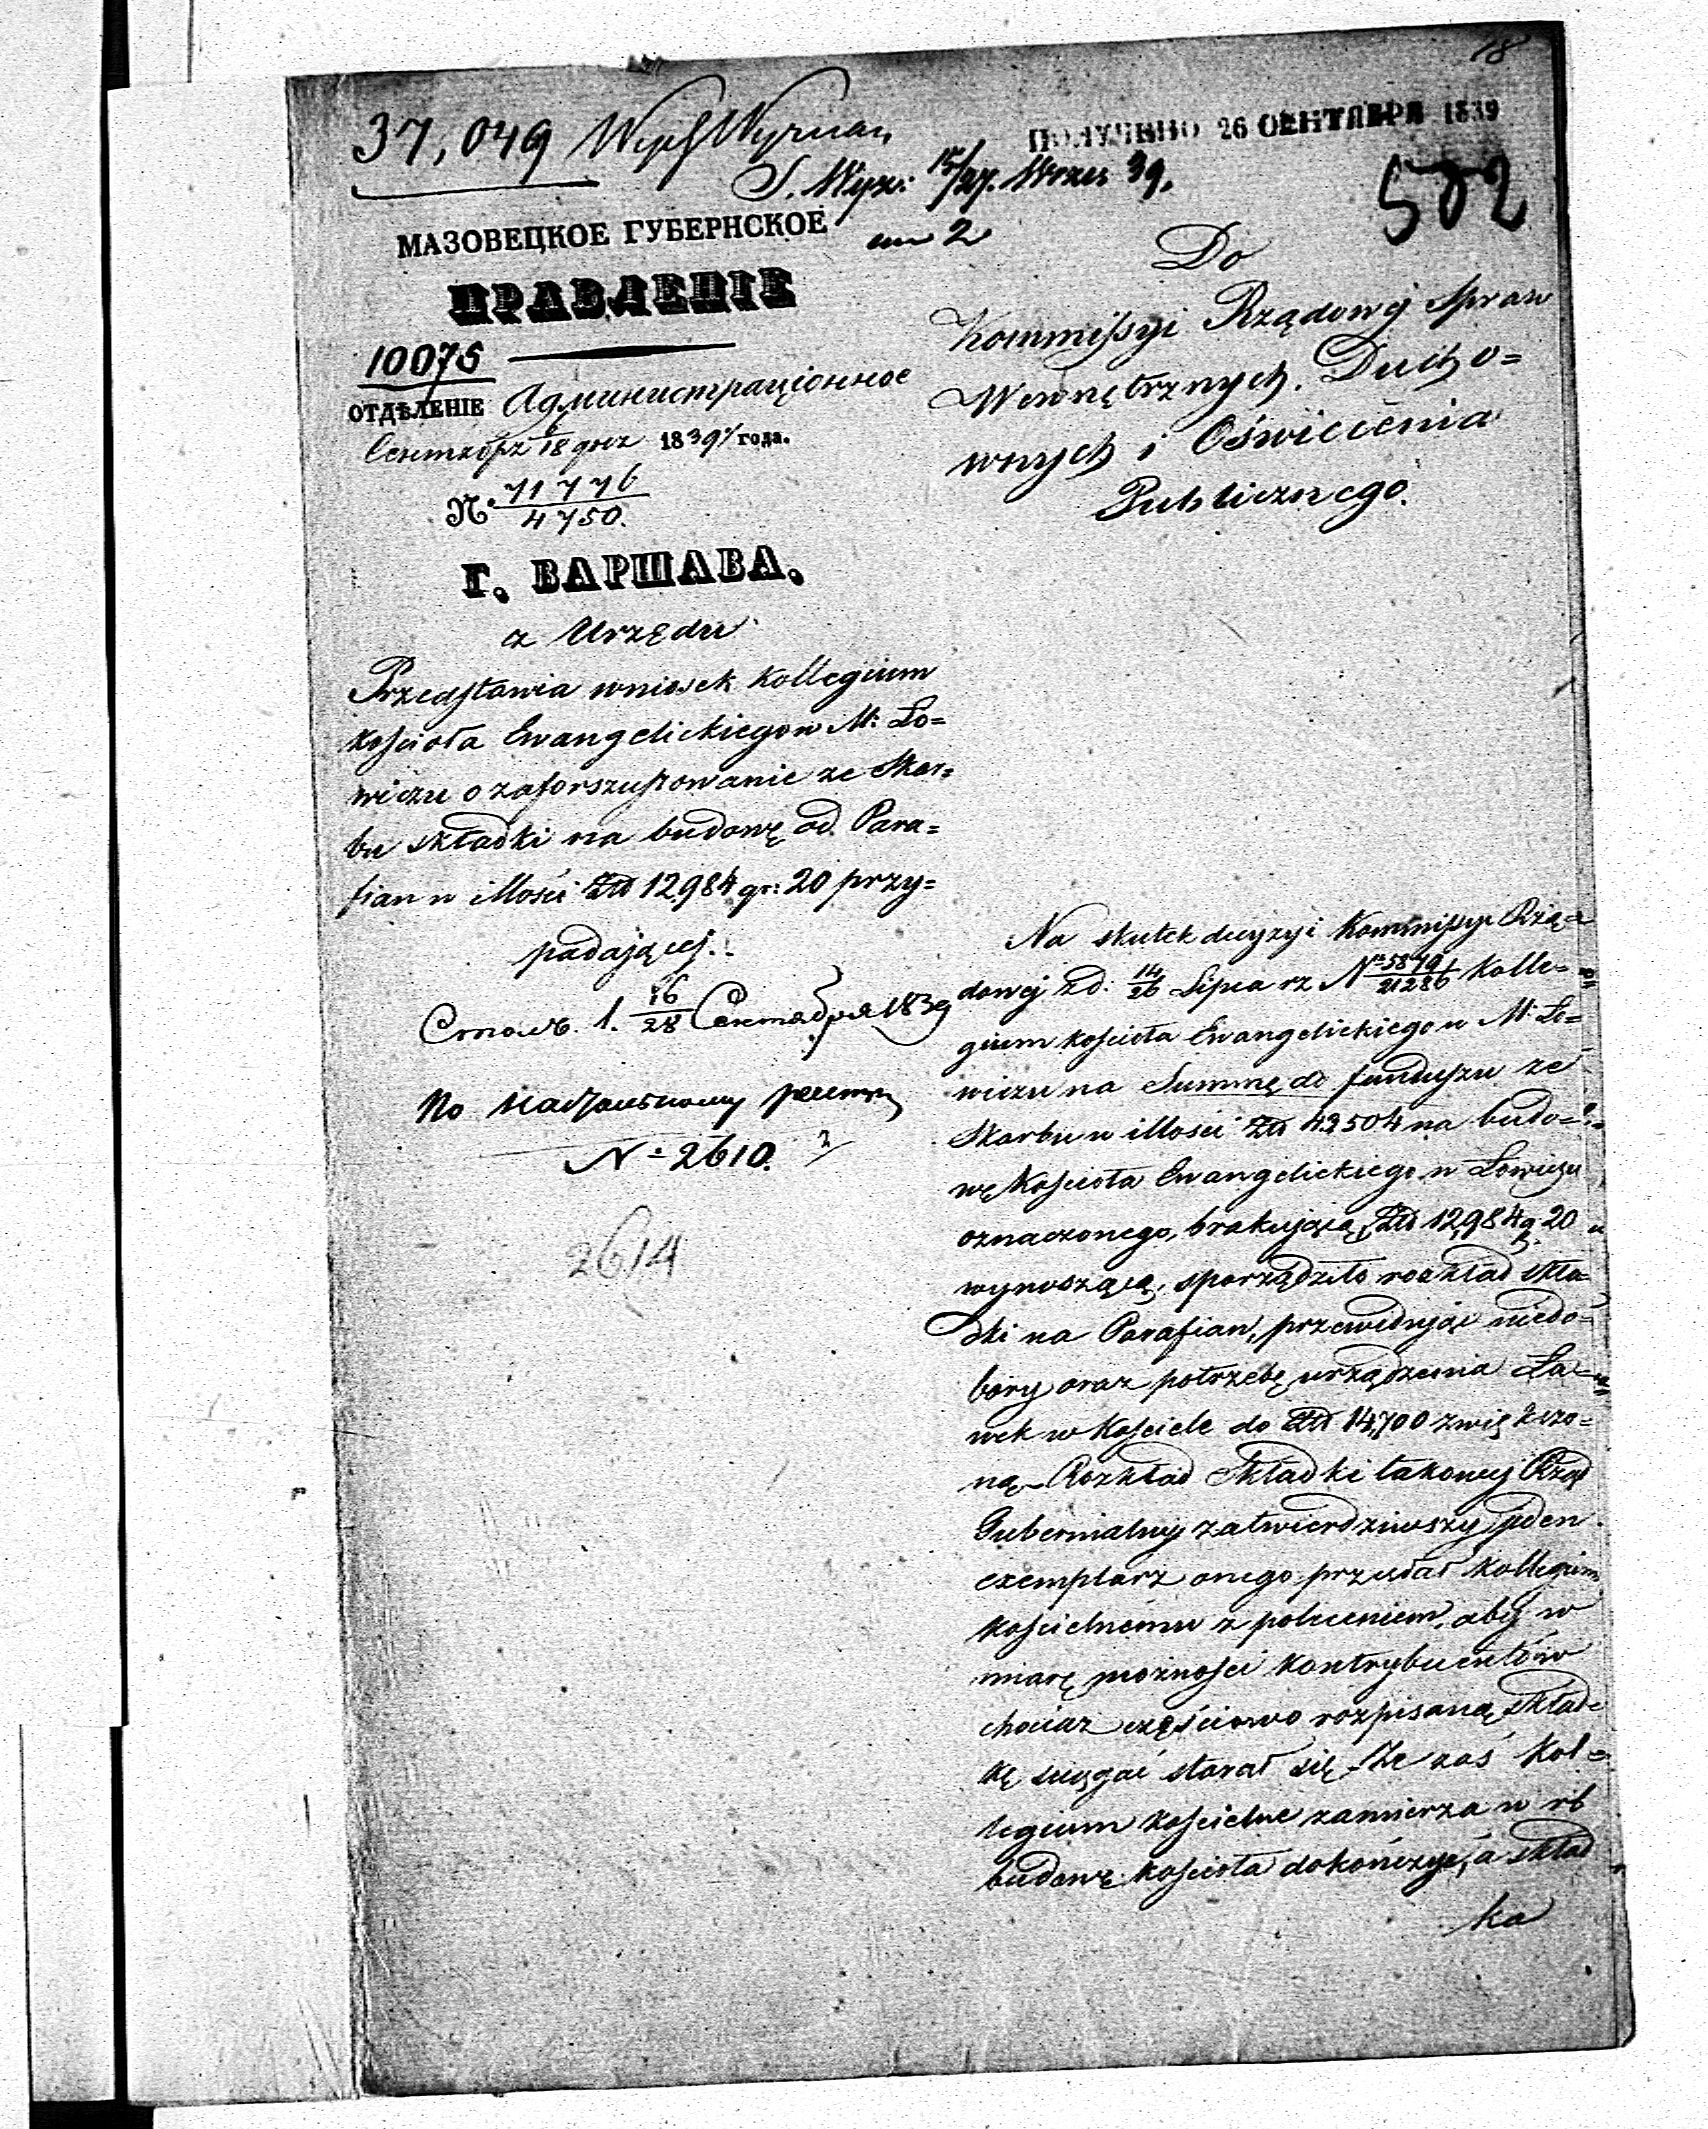 18
37,049
ПОЛУЧЕНО 26 СЕНТЯБРЯ 1839
S. Wyzn: 15/27. Wrześ 39.
502
МАЗОВЕЦКОЕ ГУБЕРНСКОЕ
ПРАВЛЕНІЕ
10075
ОТДѢЛЕНІЕ Администраціонное
Сентября 18 дня 1839 года.
N. 71776/4750.
Г. ВАРШАВА.
z Urzędu
Przedstawia wniosek Kollegium
kościoła Ewangelickiego w M: Ło=
wiczu o zaforszusowanie ze Skar=
bu składki na budowę od Para=
fian w illości Złt 12984 gr: 20 przy=
padającej.
1. 16/28 Сентября 1839
N: 2610.
2614
Do
Kommissyi Rządowej Spraw
Wewnętrznych, Ducho=
wnych i Oświecenia
Publicznego.
Na skutek decyzyi Kommissyi Rzą=
dowej z d: 14/26 Lipca rz Nr 5879/21286 Kolle=
gium kościoła Ewangelickiego w M: Ło=
wiczu na Summę do funduszu ze
Skarbu w illości Złt 42504 na budo=
wę Kościoła Ewangelickiego w Łowiczu
oznaczonego, brakującą, Złt 12,984 g. 20
wynoszącą, sporządziło rozkład skła=
dki na Parafian, przewidując niedo=
bory oraz potrzebę urządzenia Ła=
wek w Kościele do Złt 14,700 zwiększo=
ną. Rozkład Składki takowej Rząd
Gubernialny zatwierdziwszy jeden
exemplarz onego przesłał Kollegium
kościelnemu z poleceniem, aby w
miarę możności kontrybuentów
chociaż częściowo rozpisaną skład=
kę ściągać starał się. Że zaś Kol=
legium kościelne zamierza w rb
budowę kościoła dokończyć, a skład
ka